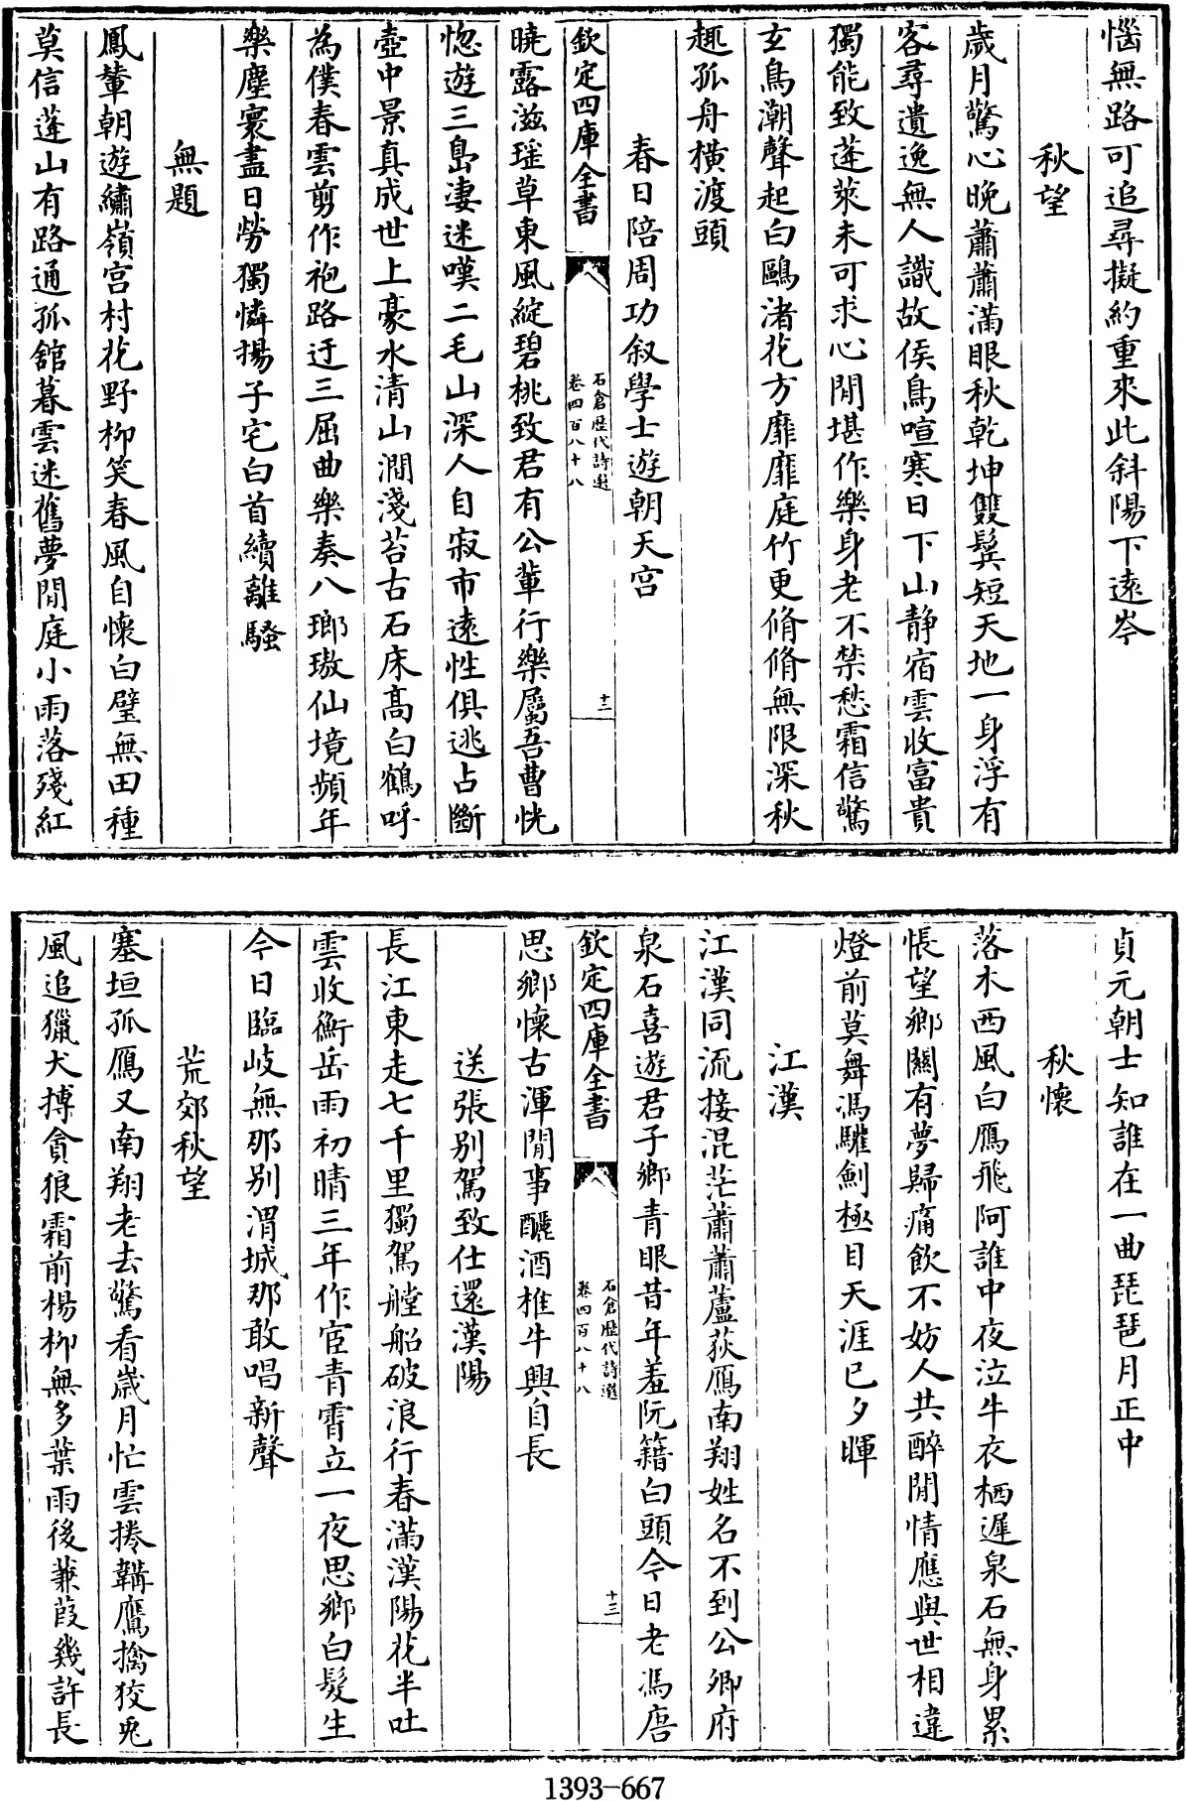 惱無路可追尋擬約重來此斜陽下遠岑
秋望
歲月驚心晚蕭蕭滿眼秋乾坤雙鬂短天地一身浮有
客尋遺逸無人識故侯鳥喧寒日下山静宿雲收富貴
獨能致蓬萊未可求心閒堪作樂身老不禁愁霜信驚
玄鳥潮聲起白鷗渚花方靡靡庭竹更脩脩無限深秋
趣孤舟橫渡頭
春日陪周功叙學士遊朝天宫
欽定四庫全書
石倉歷代詩選
卷四百八十八
十二
曉露滋瑶草東風綻碧桃致君有公輩行樂屬吾曹恍
惚遊三島凄迷嘆二毛山深人自寂市遠性俱逃占斷
壺中景真成世上豪水清山澗淺苔古石床高白鶴呼
為僕春雲剪作袍路迂三屈曲樂奏八瑯璈仙境頻年
樂塵寰盡日勞獨憐揚子宅白首續離騷
無題
鳳輦朝遊繡嶺宫村花野柳笑春風自懷白璧無田種
莫信蓬山有路通孤舘暮雲迷舊夢閒庭小雨落殘紅
貞元朝士知誰在一曲琵琶月正中
秋懷
落木西風白鴈飛阿誰中夜泣牛衣栖遲泉石無身累
悵望鄉關有夢歸痛飲不妨人共醉閒情應與世相違
燈前莫舞馮驩劍極目天涯已夕暉
江漢
江漢同流接混茫蕭蕭蘆荻鴈南翔姓名不到公卿府
泉石喜遊君子鄉青眼昔年羞阮籍白頭今日老馮唐
欽定四庫全書
石倉歷代詩選
卷四百八十八
十三
思鄉懷古渾閒事釃酒椎牛興自長
送張别駕致仕還漢陽
長江東走七千里獨駕艟船破浪行春滿漢陽花半吐
雲收衡岳雨初晴三年作宦青霄立一夜思鄉白髮生
今日臨岐無那别渭城那敢唱新聲
荒郊秋望
塞垣孤鴈又南翔老去驚看歲月忙雲捲韝鷹擒狡兎
風追獵犬搏貪狼霜前楊柳無多葉雨後蒹葭幾許長
1393-667